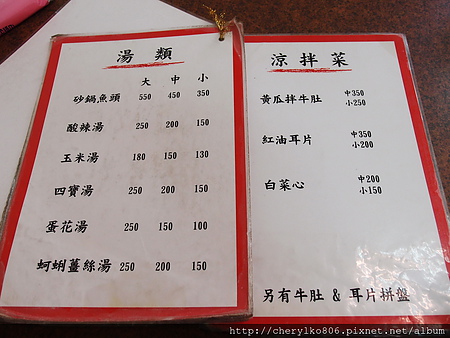 湯類
大 中 小
砂鍋魚頭 550 450 350
酸辣湯 250 200 150
玉米湯 180 150 130
四寶湯 250 200 150
蛋花湯 250 150 100
蚵蜊薑絲湯 250 200 150
涼拌菜
黃瓜拌牛肚 中350
小250
紅油耳片 中350
小200
白菜心 中200
小150
另有牛肚 & 耳片拼盤
http://cherylko806.pixnet.net/album